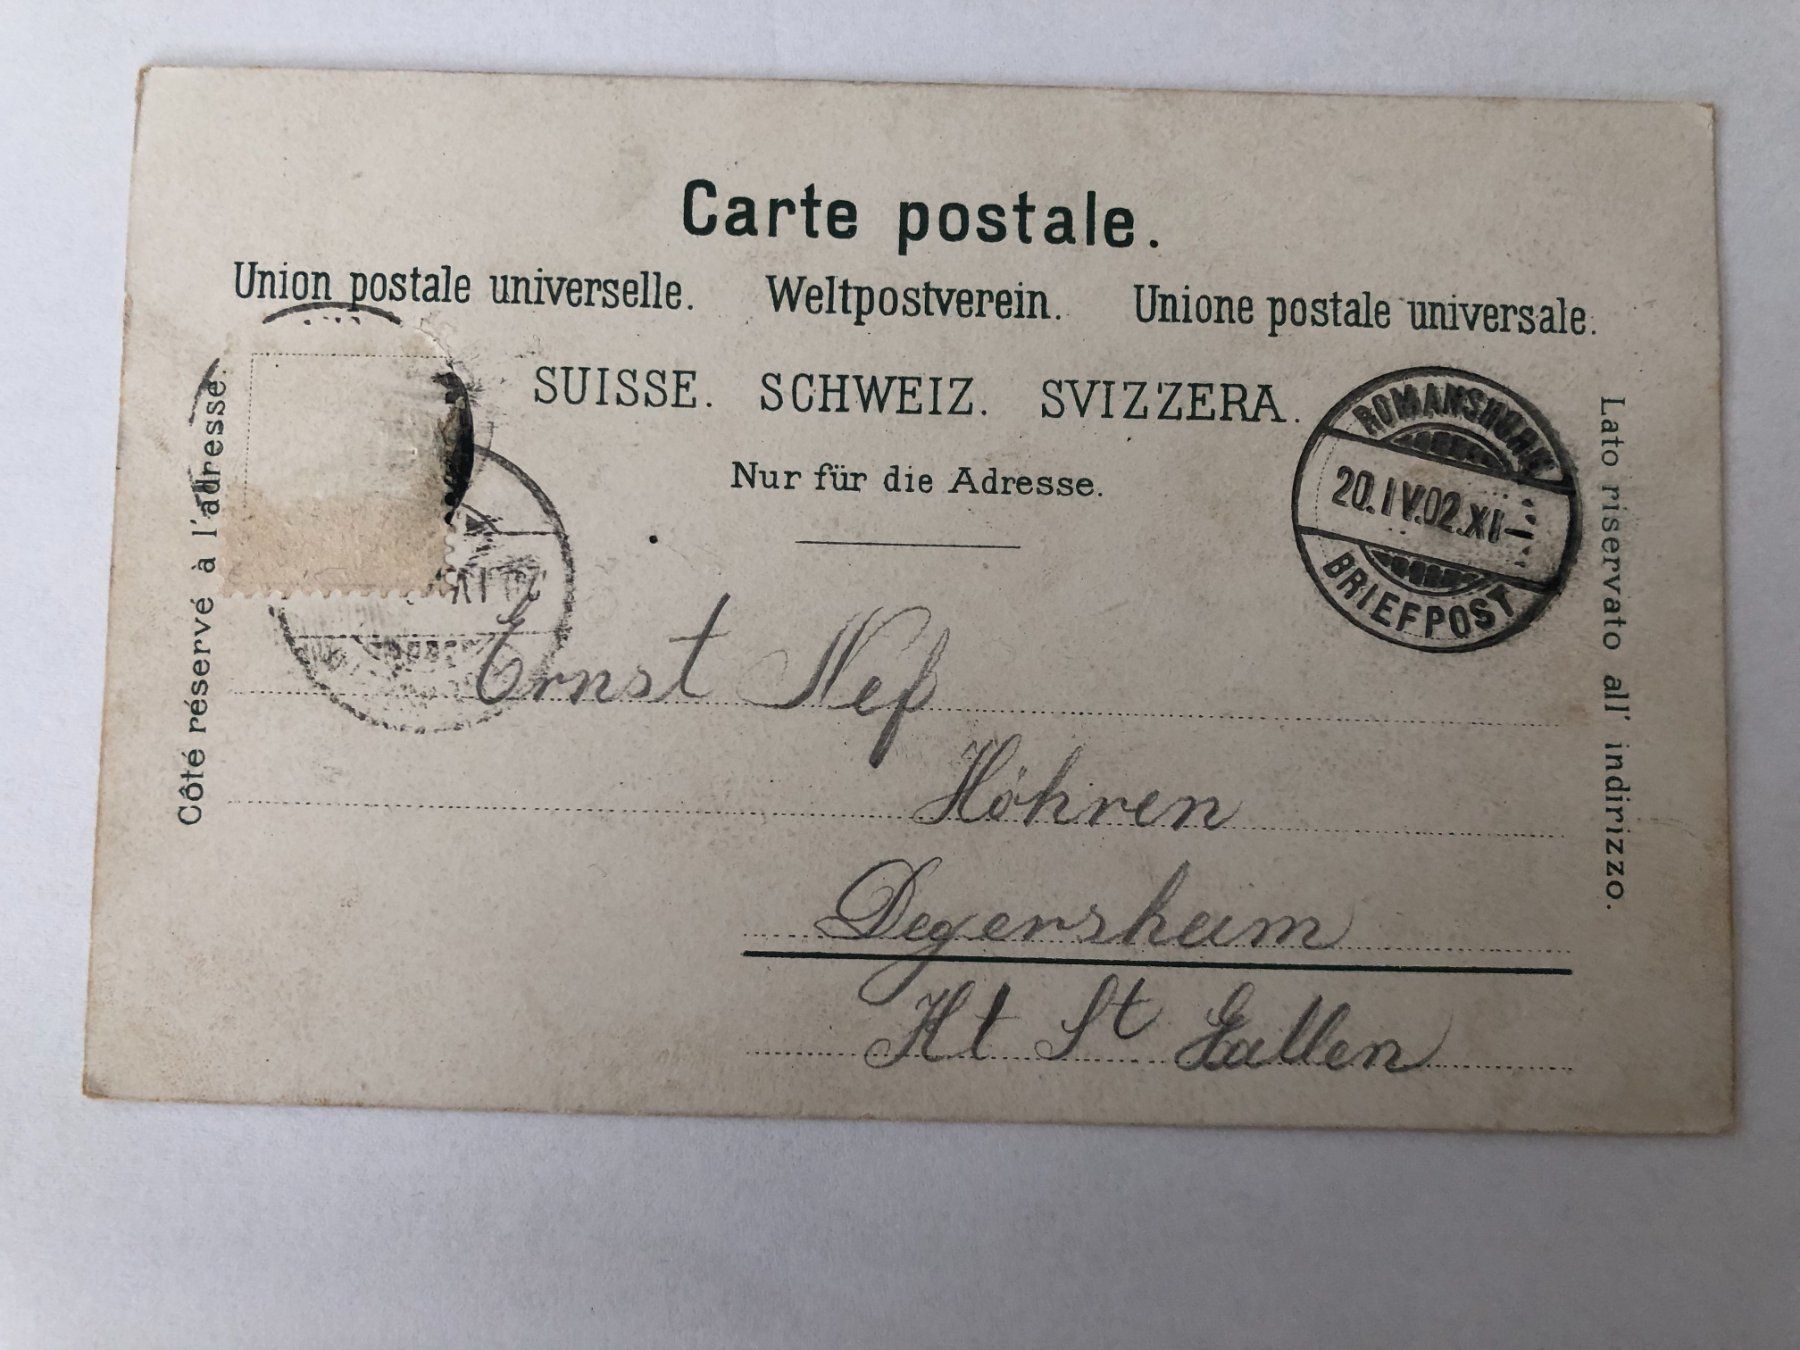 Carte postale.
Union postale universelle. Weltpostverein. Unione postale universale.
SUISSE. SCHWEIZ. SVIZZERA.
Nur für die Adresse.
Côté réservé à l'adresse.
Lato riservato all' indirizzo.
ROMANSHORN
20.IV.02.XI-
BRIEFPOST
Ernst Nef
Höhren
Degersheim
Kt St Gallen